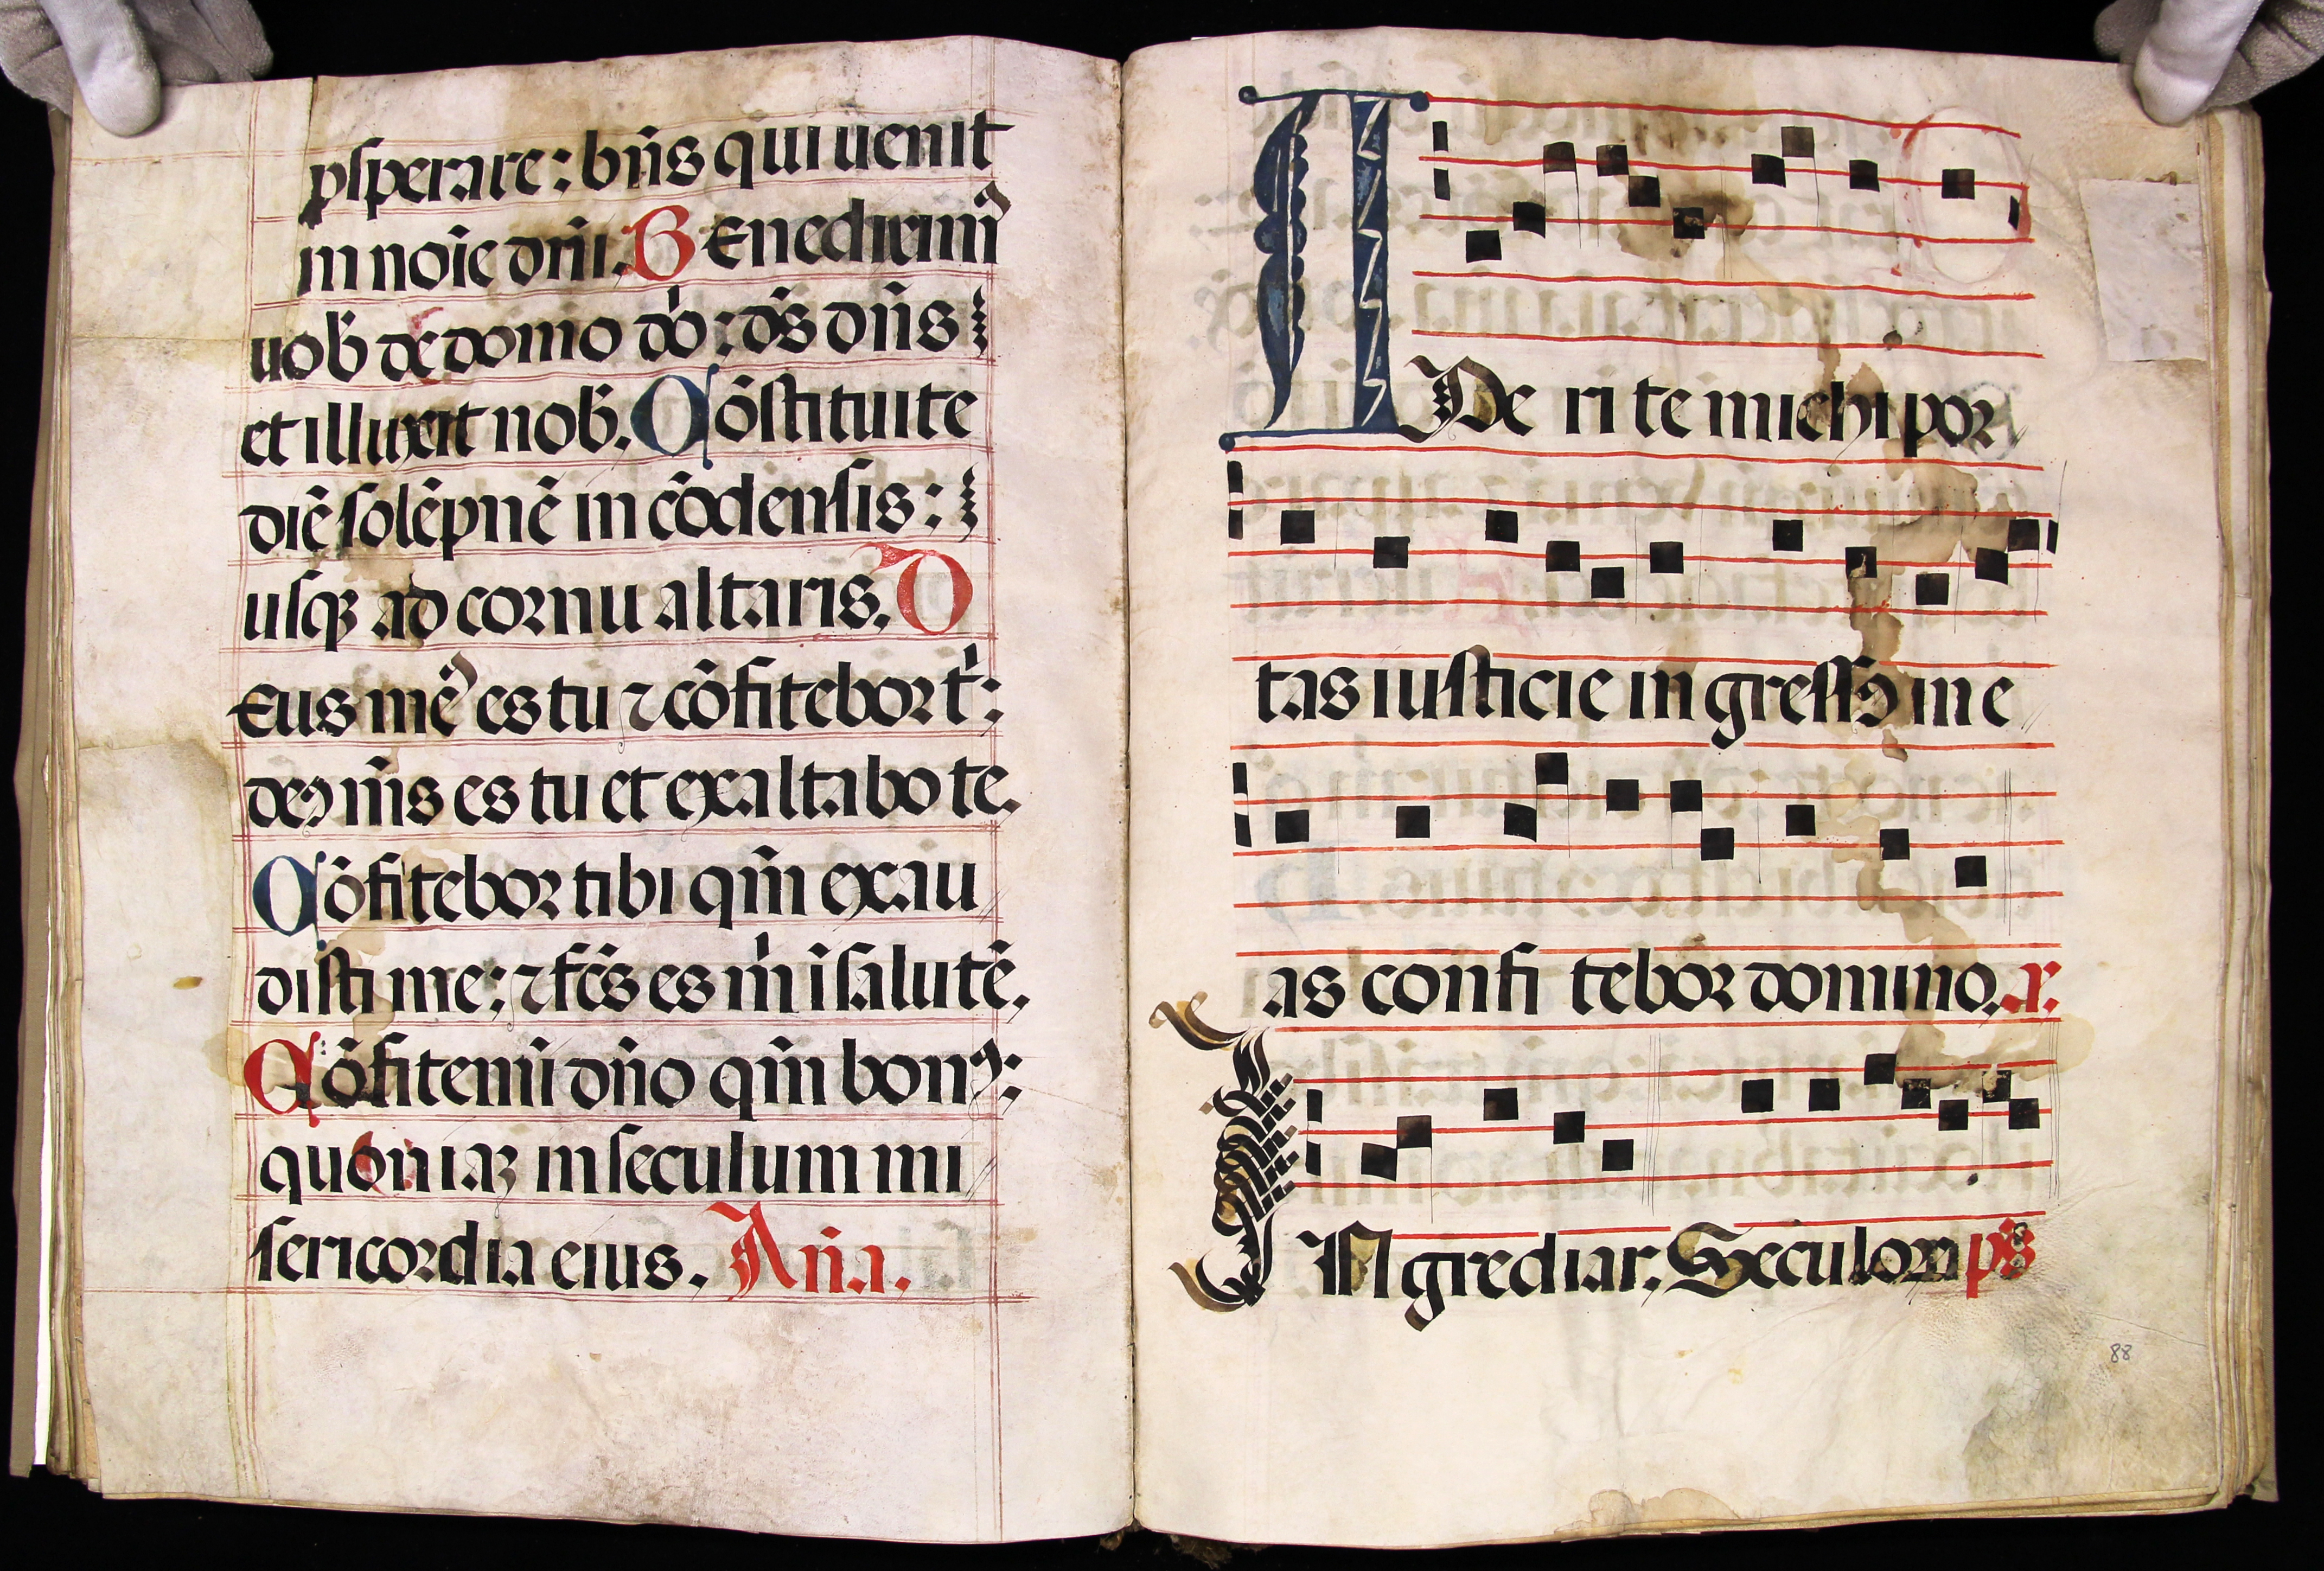 ꝓsperare: bn̄s qui uenit
in noīe dn̄i. Benediximꝰ
uob̄ de domo dn̄i: ds̄ dn̄s
et illuxit nob̄. Cōstituite
diē solēpnē in cōdensis:
usqꝫ ad cornu altaris. D
Eus meꝰ es tu ⁊ cōfitebor t̄:
deꝰ m̄s es tu et exaltabo te.
Cōfitebor tibi qm̄ exau
disti me: ⁊ fc̄s es m̄ ī salutē.
Cōfitemī dn̄o qm̄ bonꝰ:
quoniaꝫ in seculum mi
sericordia eius. An̄a.
APe ri te michi por
tas iusticie ingressꝰ in e
as confi tebor domino. r.
INgrediar. Seculoꝝ ps̄
88